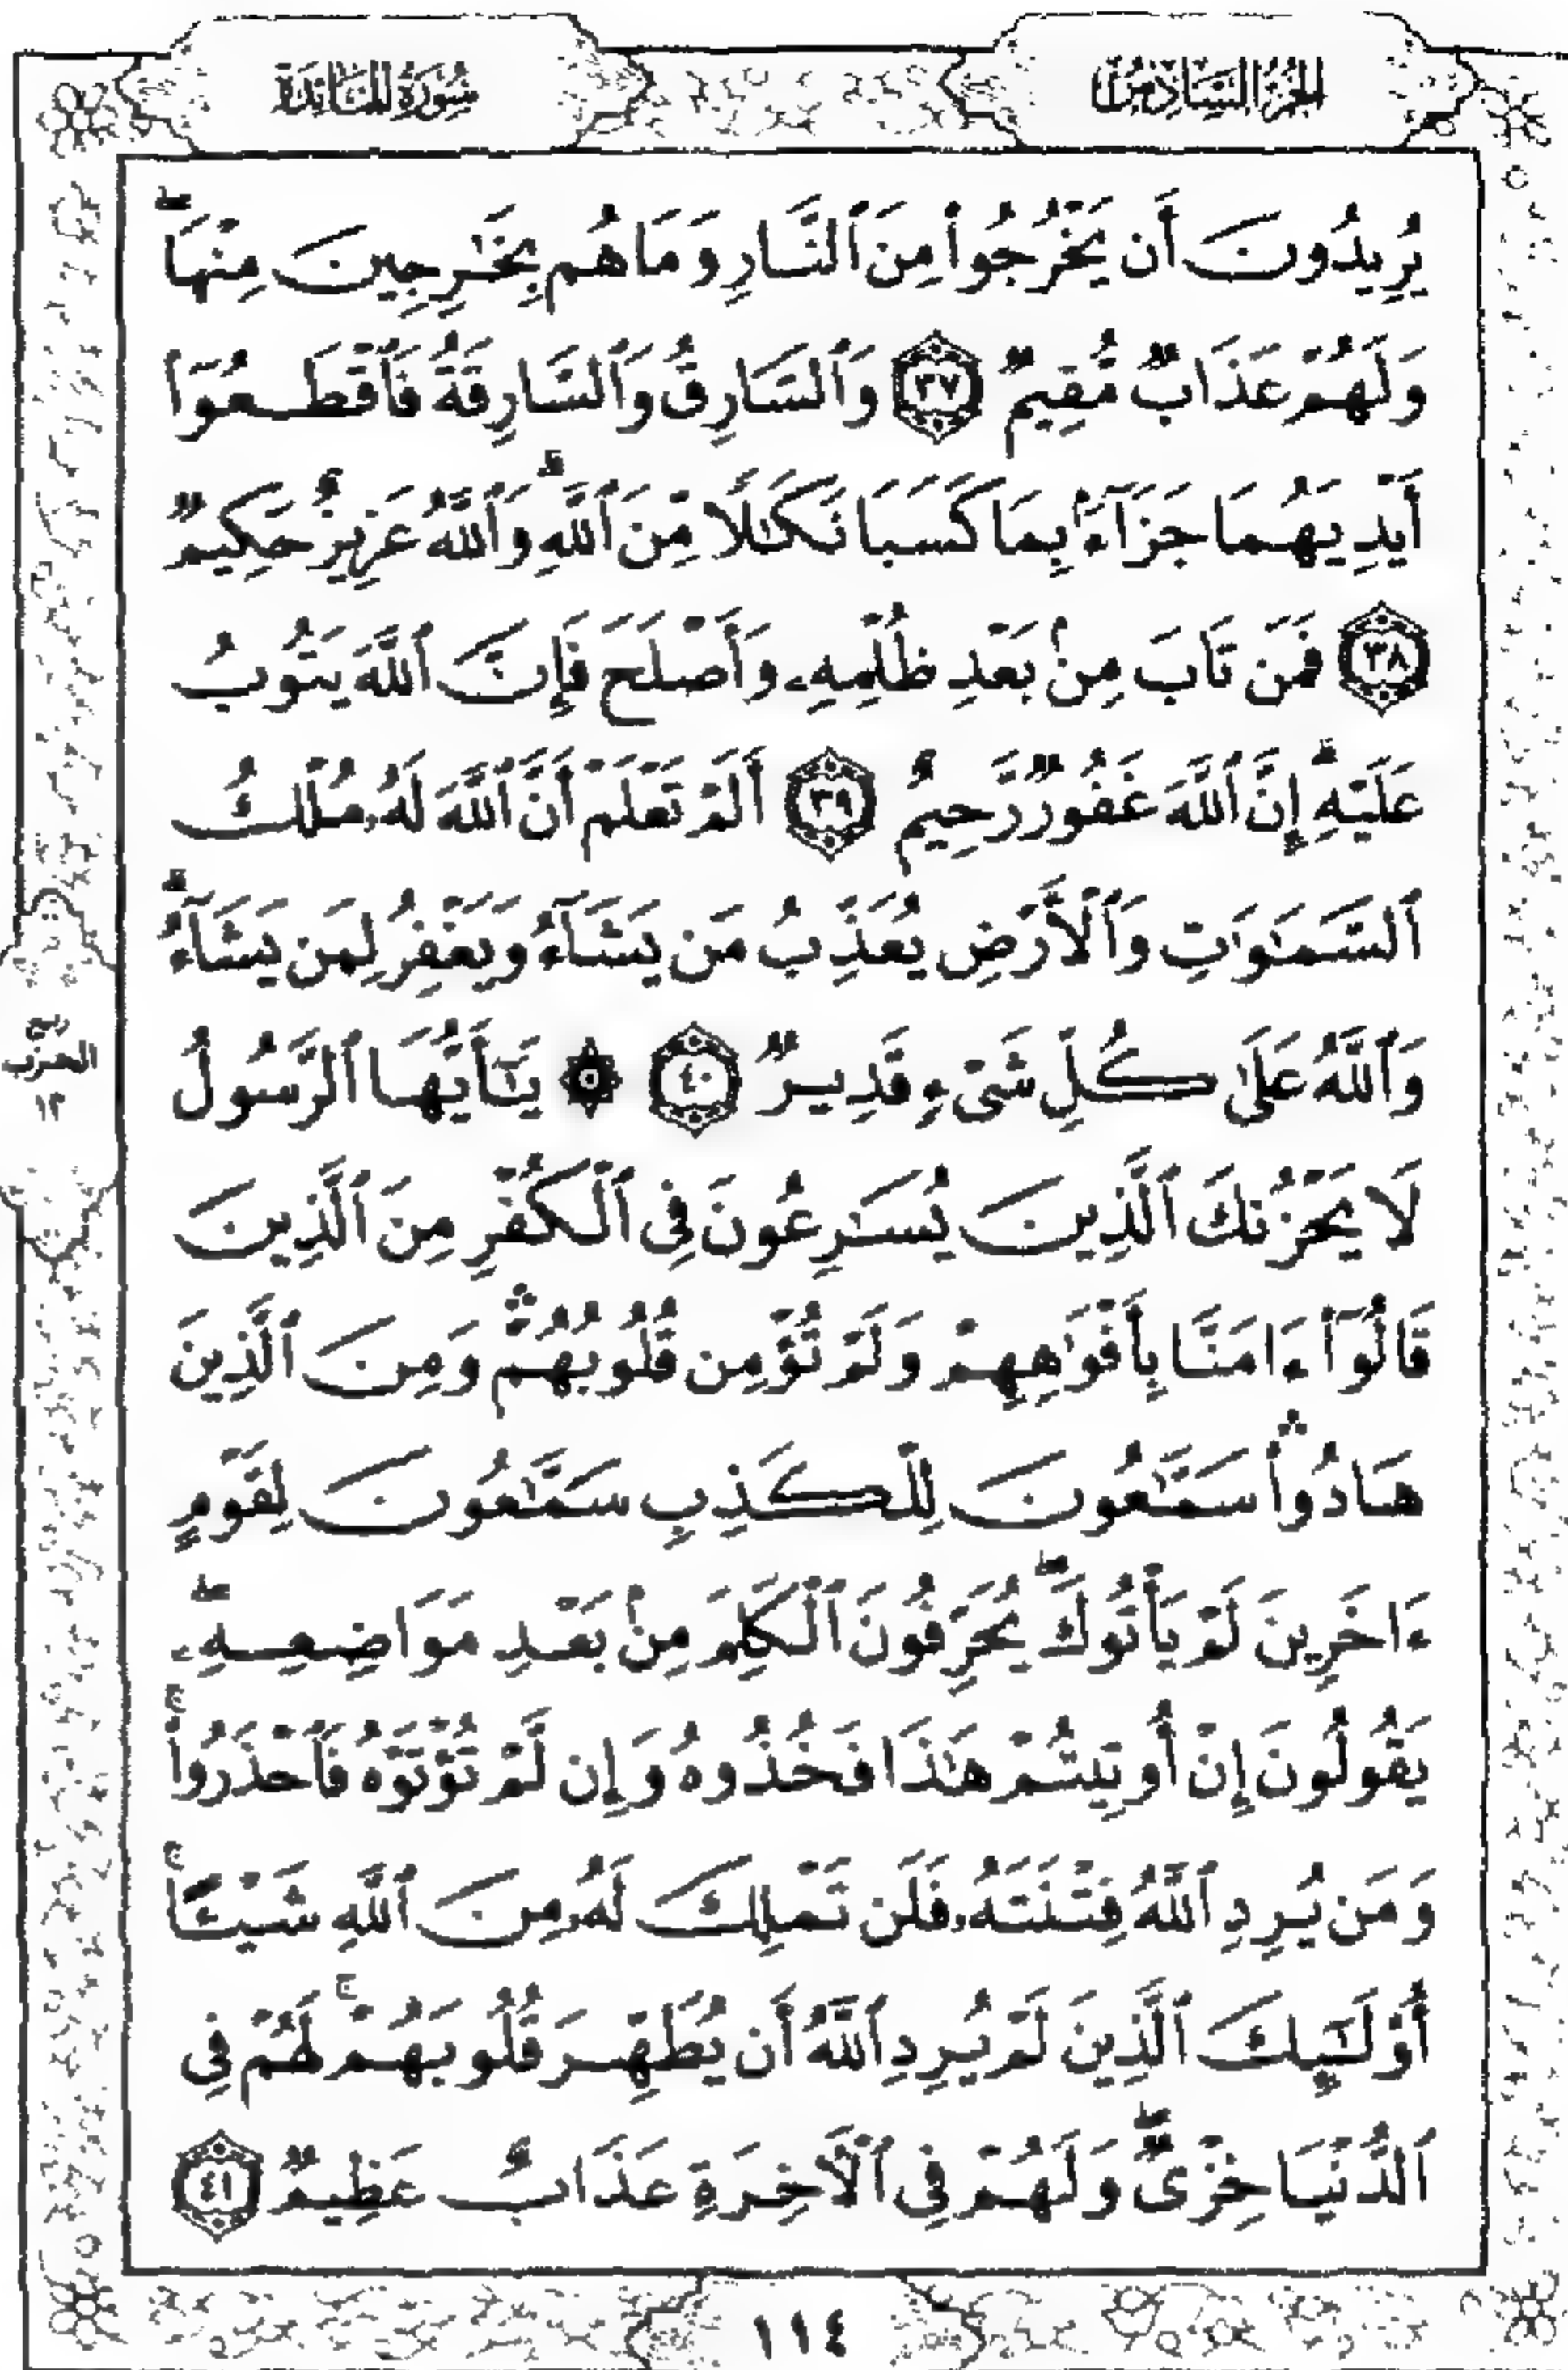 الجزء السادس
سورة المائدة
يُرِيدُونَ أَن يَخْرُجُوا۟ مِنَ ٱلنَّارِ وَمَا هُم بِخَـٰرِجِينَ مِنْهَا ۖ
وَلَهُمْ عَذَابٌ مُّقِيمٌ ٣٧ وَٱلسَّارِقُ وَٱلسَّارِقَةُ فَٱقْطَعُوٓا۟
أَيْدِيَهُمَا جَزَآءًۢ بِمَا كَسَبَا نَكَـٰلًا مِّنَ ٱللَّهِ ۗ وَٱللَّهُ عَزِيزٌ حَكِيمٌ
٣٨ فَمَن تَابَ مِنۢ بَعْدِ ظُلْمِهِۦ وَأَصْلَحَ فَإِنَّ ٱللَّهَ يَتُوبُ
عَلَيْهِ ۗ إِنَّ ٱللَّهَ غَفُورٌ رَّحِيمٌ ٣٩ أَلَمْ تَعْلَمْ أَنَّ ٱللَّهَ لَهُۥ مُلْكُ
ٱلسَّمَـٰوَٰتِ وَٱلْأَرْضِ يُعَذِّبُ مَن يَشَآءُ وَيَغْفِرُ لِمَن يَشَآءُ ۗ
وَٱللَّهُ عَلَىٰ كُلِّ شَىْءٍ قَدِيرٌ ٤٠ ۞ يَـٰٓأَيُّهَا ٱلرَّسُولُ
لَا يَحْزُنكَ ٱلَّذِينَ يُسَـٰرِعُونَ فِى ٱلْكُفْرِ مِنَ ٱلَّذِينَ
قَالُوٓا۟ ءَامَنَّا بِأَفْوَٰهِهِمْ وَلَمْ تُؤْمِن قُلُوبُهُمْ ۛ وَمِنَ ٱلَّذِينَ
هَادُوا۟ ۛ سَمَّـٰعُونَ لِلْكَذِبِ سَمَّـٰعُونَ لِقَوْمٍ
ءَاخَرِينَ لَمْ يَأْتُوكَ ۖ يُحَرِّفُونَ ٱلْكَلِمَ مِنۢ بَعْدِ مَوَاضِعِهِۦ ۖ
يَقُولُونَ إِنْ أُوتِيتُمْ هَـٰذَا فَخُذُوهُ وَإِن لَّمْ تُؤْتَوْهُ فَٱحْذَرُوا۟ ۚ
وَمَن يُرِدِ ٱللَّهُ فِتْنَتَهُۥ فَلَن تَمْلِكَ لَهُۥ مِنَ ٱللَّهِ شَيْـًٔا ۚ
أُو۟لَـٰٓئِكَ ٱلَّذِينَ لَمْ يُرِدِ ٱللَّهُ أَن يُطَهِّرَ قُلُوبَهُمْ ۚ لَهُمْ فِى
ٱلدُّنْيَا خِزْىٌ ۖ وَلَهُمْ فِى ٱلْـَٔاخِرَةِ عَذَابٌ عَظِيمٌ ٤١
الحزب
١١٤